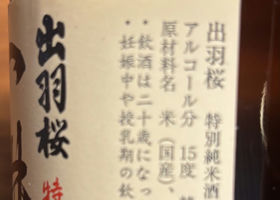 出羽桜 特別純米酒
アルコール分 15度
原材料名 米(国産)、
・飲酒は二十歳になっ
・妊娠中や授乳期の飲
出羽桜
特